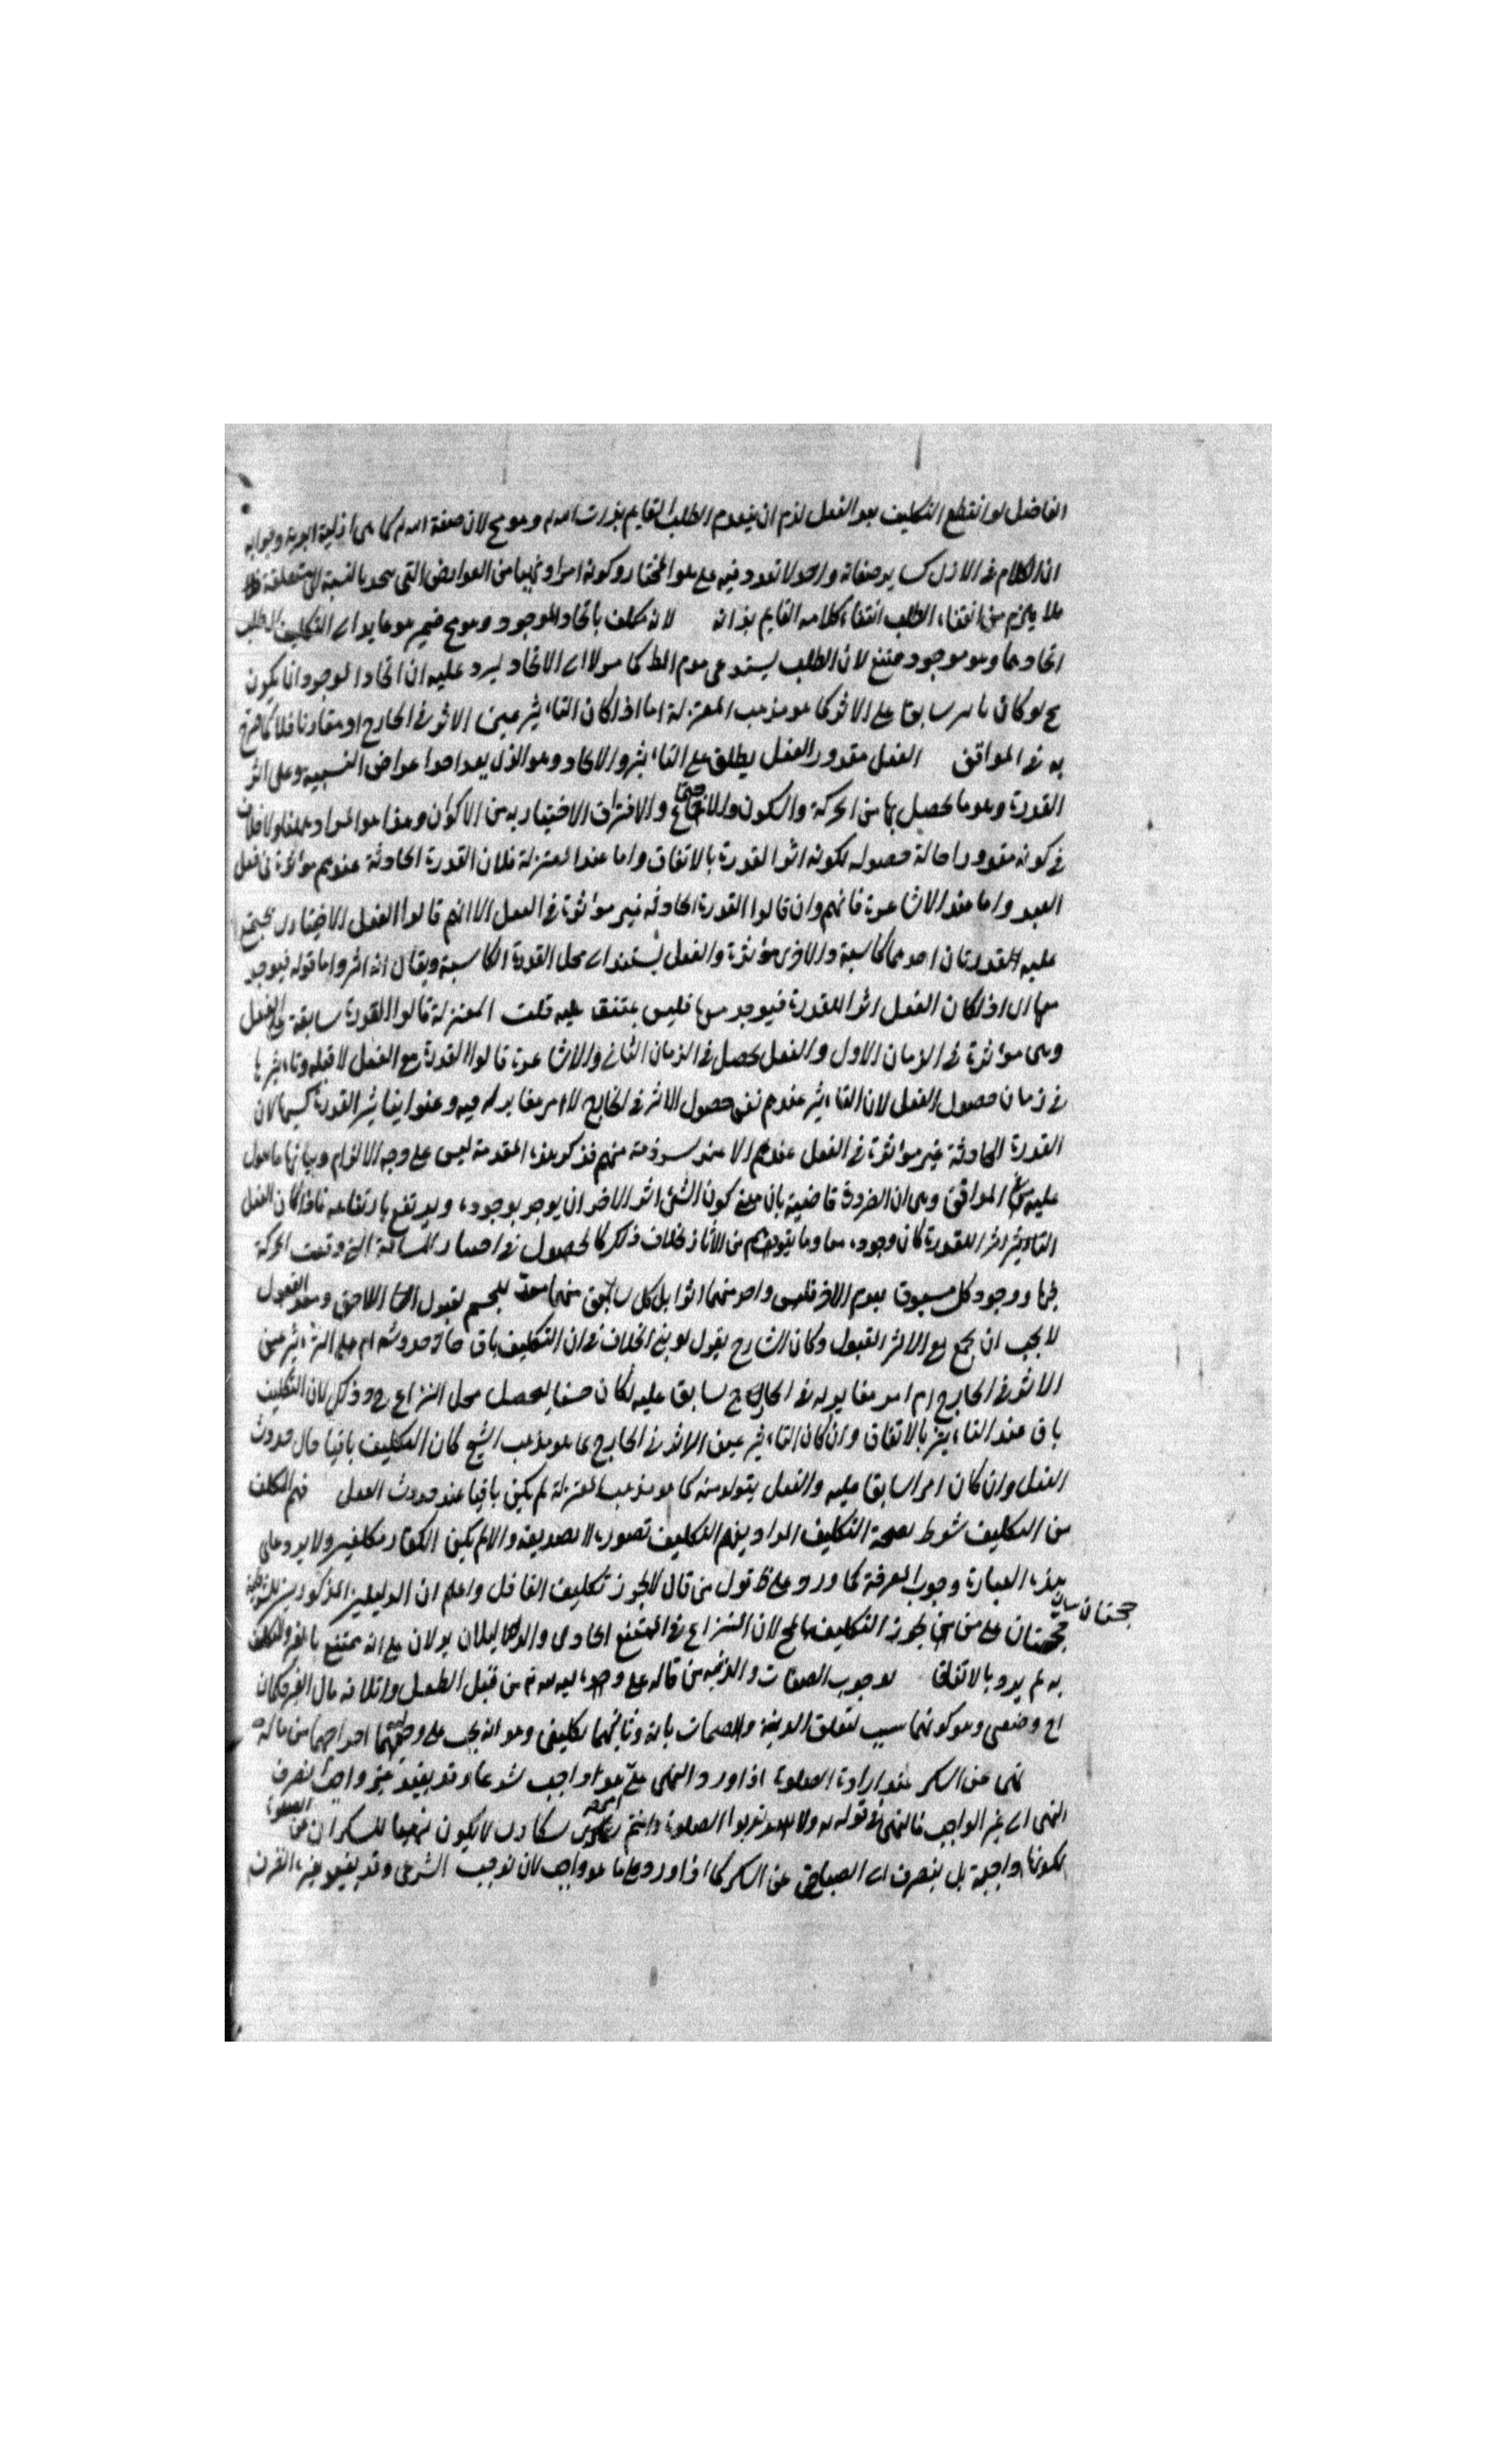 الفاضل لو انقطع التكليف بعد الفعل لزم ان ينعدم الطلب القايم بذات الله تم وهو مح لان صفة الله تم كما هى ازلية ابدية وجوابه
ان الكلام فى الازل كساير صفاته واحد لا تعدد فيه على ما هو المختار وكونه امرا ونهيا من العوارض التى بالنسبة الى متعلقه
فلا يلزم من انتفاء الطلب انتفاء كلامه القايم بذاته لانه مكلف باتحاد الموجود وهو مح ضمير هو عايد الى التكليف الطلب
اتحادها وهو موجود ممتنع لان الطلب يستدعى عدم الط كما مر لا الى الاتحاد ليرد عليه ان اتحاد الموجود انما يكون
مح لو كان سابقا على الاثر كما هو مذهب المعتزلة اما اذا كان التاثير عين الاثر فى الخارج او مقارنا فلا كما صرح
به فى المواقف الفعل مقدور الفعل يطلق على التاثير والايجاد وهو الذى يعد احد اعراض النسبية وعلى اثر
القدرة وهو ما يحصل بها من الحركة والسكون والاجتماع والافتراق الاختيارية من الاكوان وهذا هو المراد ههنا ولا خلاف
فى كونه مقدورا حالة حصوله لكونه اثر القدرة بالاتفاق واما عند المعتزلة فلان القدرة الحادثة عندهم مؤثرة فى فعل
العبد واما عند الاشاعرة فانهم وان قالوا القدرة الحادثة غير مؤثرة فى الفعل الا انهم قالوا الفعل الاختيارى يجتمع
عليه القدرتان احدهما كاسبة والاخرى مؤثرة والفعل يستند الى محل القدرة الكاسبة ويقال انه اثر واما قوله فيوجد
معها اى اذا كان الفعل اثر القدرة فيوجد معها فليس بمتفق عليه قلت المعتزلة قالوا القدرة سابقة على الفعل
وهى مؤثرة فى الزمان الاول والفعل يحصل فى الزمان الثانى والاشاعرة قالوا القدرة مع الفعل لا قبله وتاثيرها
فى زمان حصول الفعل لان التاثير عندهم نفس حصول الاثر فى الخارج لا امر مغاير له فيه وعنوا بتاثير القدرة كسبها لان
القدرة الحادثة غير مؤثرة فى الفعل عندهم الا عند شرذمة منهم فذكر هذه المقدمة ليس على وجه الالزام وبيانها ما هول
عليه فى المواقف وهى ان الضرورة قاضية بان معنى كون الشئ اثر الاخر ان يوجد بوجوده ويرتفع بارتفاعه فاذا كان الفعل
التاثير اثر للقدرة كان وجوده معها وما يتوهم من الآثار بخلاف ذلك كالحصول فى المسافة التى وقعت الحركة
فيها ووجود كل مسبوق بعدم الاخر فليس واحد منهما اثرا بل كل سابق منهما معد للجسم لقبول اللاحق ومعد القبول
لا يجب ان يجمع مع الاثر القبول وكان الشارح يقول لو بنى الخلاف فى ان التكليف باق حال حدوثه ام على ان التاثير عين
الاثر فى الخارج ام امر مغاير له فى الخارج سابق عليه لكان حسنا ليحصل محل النزاع ح وذلك لان التكليف
باق عند التاثير بالاتفاق وان كان التاثير عين الاثر فى الخارج على ما هو مذهب الشيخ كان التكليف باقيا حال حدوث
الفعل وان كان امرا سابقا عليه والفعل يتولد منه كما هو مذهب المعتزلة لم يكن باقيا عند حدوث الفعل فهم المكلف
من التكليف شرط لصحة التكليف المراد بفهم التكليف تصوره لا تصديقه والا لم يكن الكفار مكلفين ولا يرد على
هذه العبارة وجوب المعرفة كما ورد على ظ قول من قال لا يجوز تكليف الغافل واعلم ان الدليلين المذكورين
حجتان على من يجوز التكليف بالمح لان النزاع فى الممتنع العادى والدليلان يدلان على انه ممتنع بالغير والتكليف
حجتان بيان
به لم يرد بالاتفاق لوجوب الصفات والدية من ماله على من قتل الطفل واتلافه مال الغير فكان
اح وضعى وهو كونهما سبب لتعلق الدية والضمان بماله وثانيهما تكليفى وهو انه يجب على وليهما اخراجهما من ماله
نهى عن السكر عند ارادة الصلوة اذا ورد النهى على ما هو واجب شرعا وقد بقيد غير واجب انصرف
النهى الى غير الواجب فالنهى فى قوله تم ولا تقربوا الصلوة وانتم سكارى لا يكون نهيا للسكران عن الصلوة
لكونها واجبة بل ينصرف الى عن السكر كما اذا ورد على ما هو واجب لان توجب الشرعى وقد بقيد بغيره انصرف